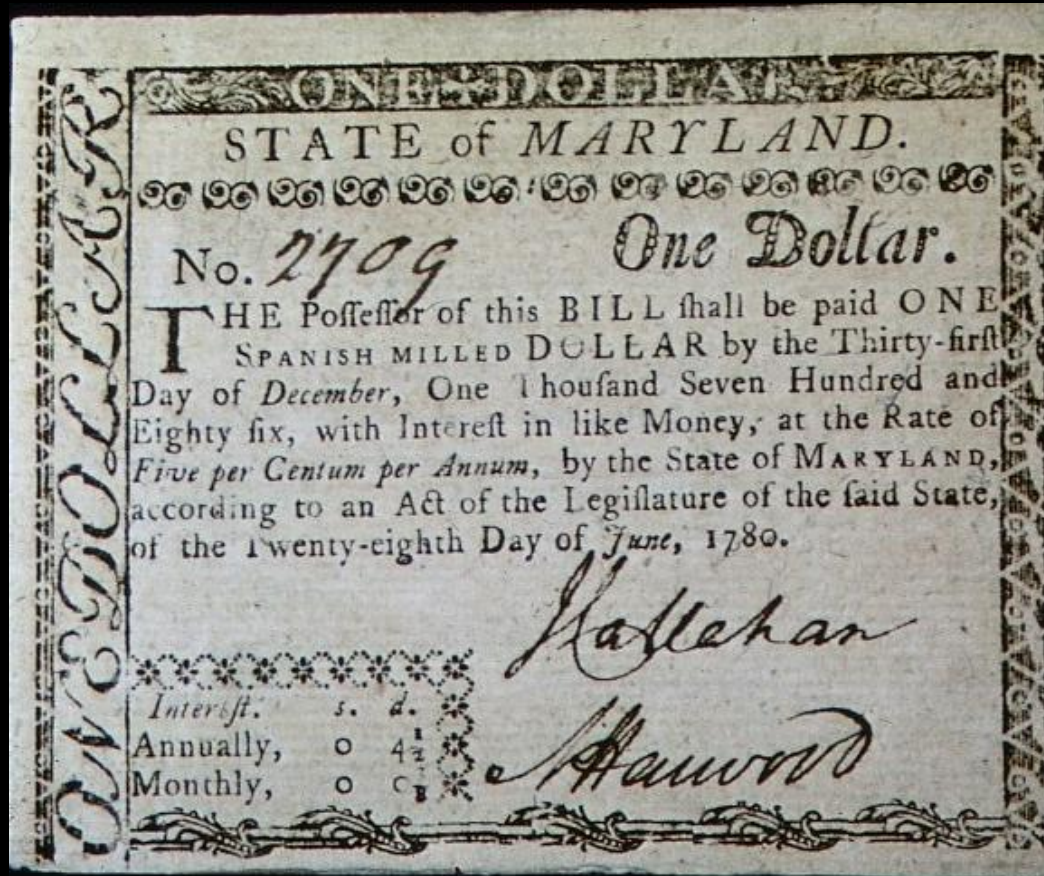 ONE DOLLAR
STATE of MARYLAND.
No. 2709 One Dollar.
THE Poſſeſſor of this BILL ſhall be paid ONE
SPANISH MILLED DOLLAR by the Thirty-firſt
Day of December, One Thouſand Seven Hundred and
Eighty ſix, with Intereſt in like Money, at the Rate of
Five per Centum per Annum, by the State of MARYLAND,
according to an Act of the Legiſlature of the ſaid State,
of the Twenty-eighth Day of June, 1780.
J Callehan
N Harwood
Intereſt. s. d.
Annually, 0 4½
Monthly, 0 0
ONE DOLLAR